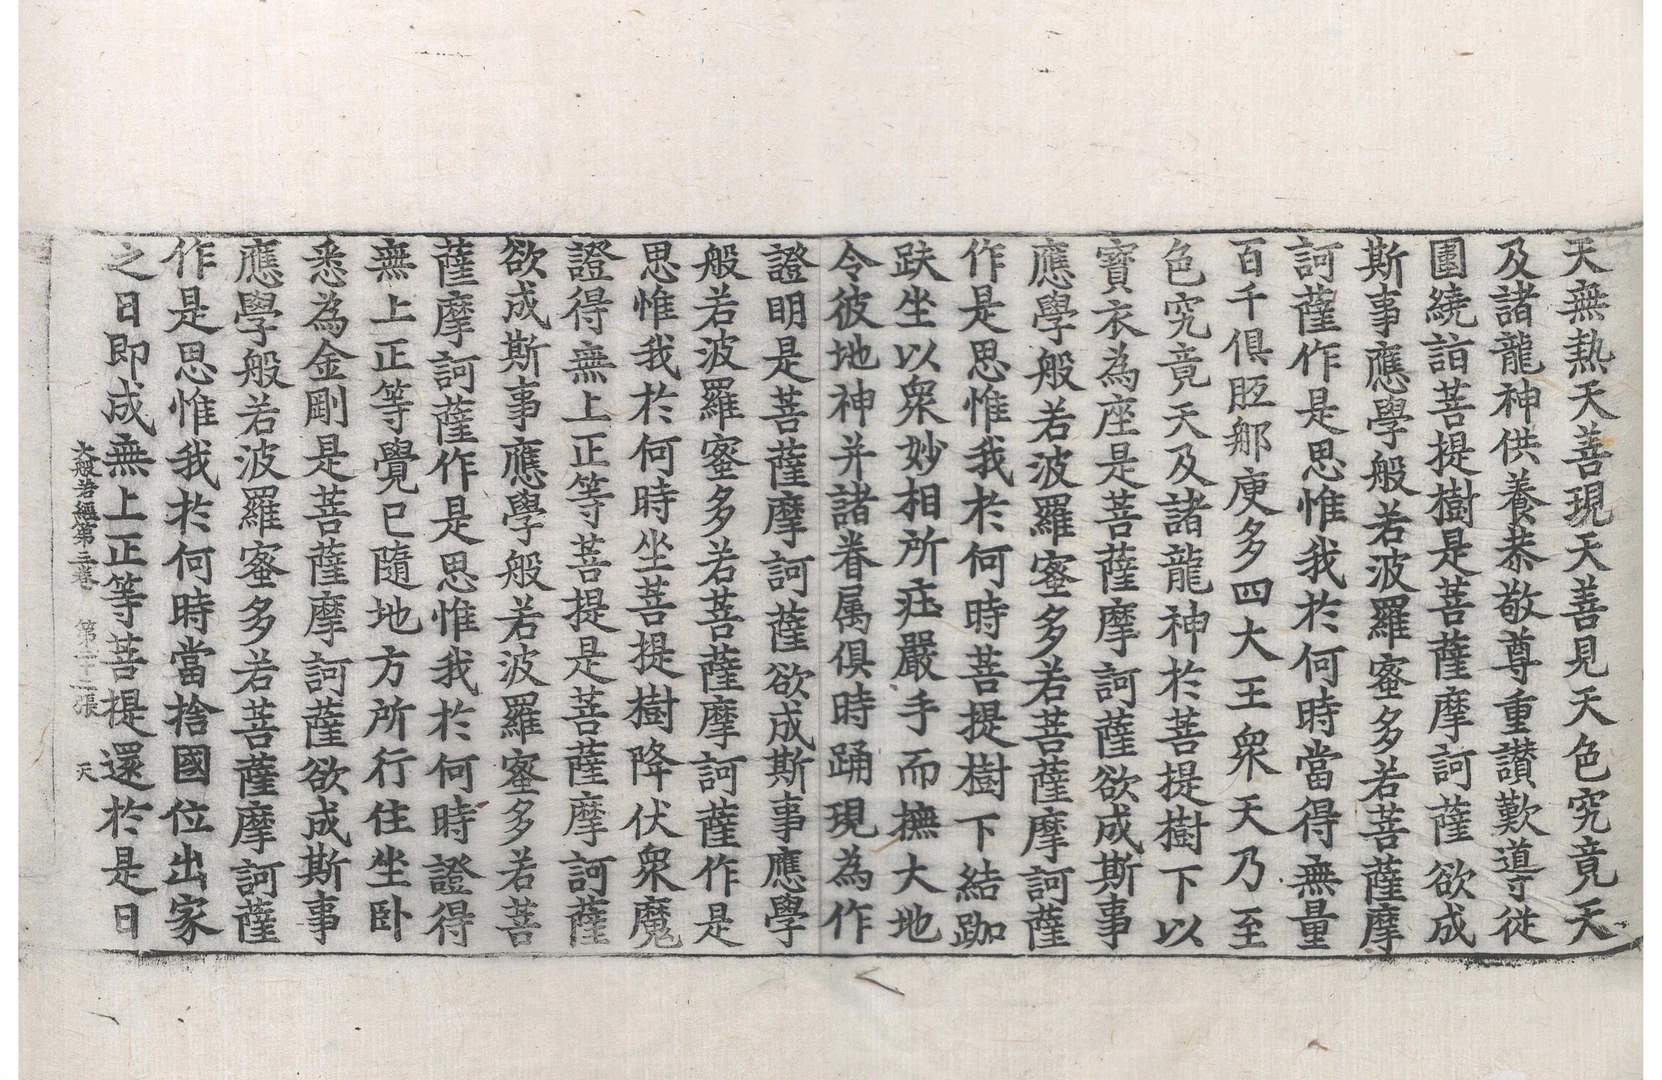 天無熱天善現天善見天色究竟天
及諸龍神供養恭敬尊重讃歎導従
圍繞詣菩提樹是菩薩摩訶薩欲成
斯事應學般若波羅蜜多若菩薩摩
訶薩作是思惟我於何時當得無量
百千俱胝那庾多四大王衆天乃至
色究竟天及諸龍神於菩提樹下以
寶衣為座是菩薩摩訶薩欲成斯事
應學般若波羅蜜多若菩薩摩訶薩
作是思惟我於何時菩提樹下結跏
趺坐以衆妙相所莊嚴手而撫大地
令彼地神并諸眷属俱時踊現為作
證明是菩薩摩訶薩欲成斯事應學
般若波羅蜜多若菩薩摩訶薩作是
思惟我於何時坐菩提樹降伏衆魔
證得無上正等菩提是菩薩摩訶薩
欲成斯事應學般若波羅蜜多若菩
薩摩訶薩作是思惟我於何時證得
無上正等覺已隨地方所行住坐卧
悉為金剛是菩薩摩訶薩欲成斯事
應學般若波羅蜜多若菩薩摩訶薩
作是思惟我於何時當捨國位出家
之日即成無上正等菩提還於是日
大般若經第三卷 第二十二張 天